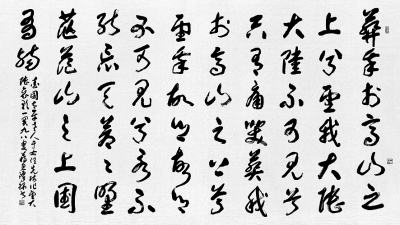 葬我於高山之
上兮望我大陸
大陸不可見兮
只有痛哭葬我
於高山之上兮
望我故鄉故鄉
不可見兮永不
能忘天蒼蒼野
茫茫山之上國
有殤